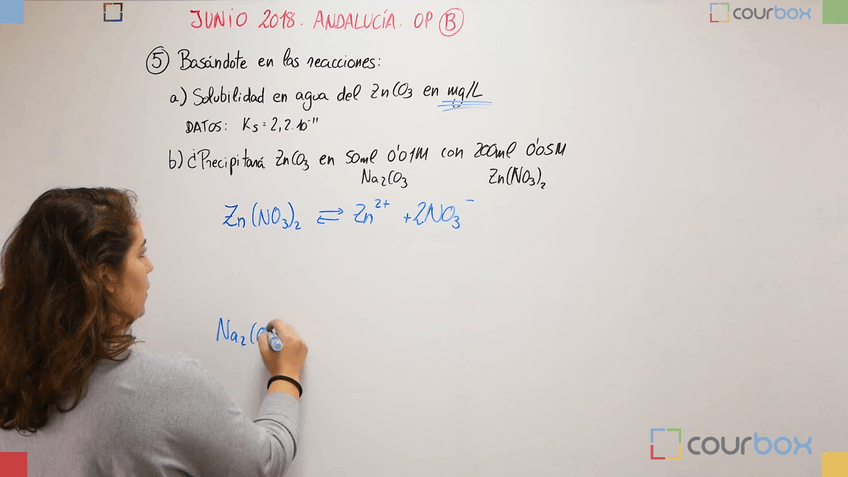 JUNIO 2018. ANDALUCÍA. OP B
courbox
5 Basándote en las reacciones:
a) Solubilidad en agua del ZnCO3 en mg/L
DATOS: Ks = 2,2·10⁻¹¹
b) ¿Precipitará ZnCO3 en 50ml 0'01M con 200ml 0'05M
Na2CO3 Zn(NO3)2
Zn(NO3)2 ⇌ Zn²⁺ + 2NO3⁻
Na2C
courbox